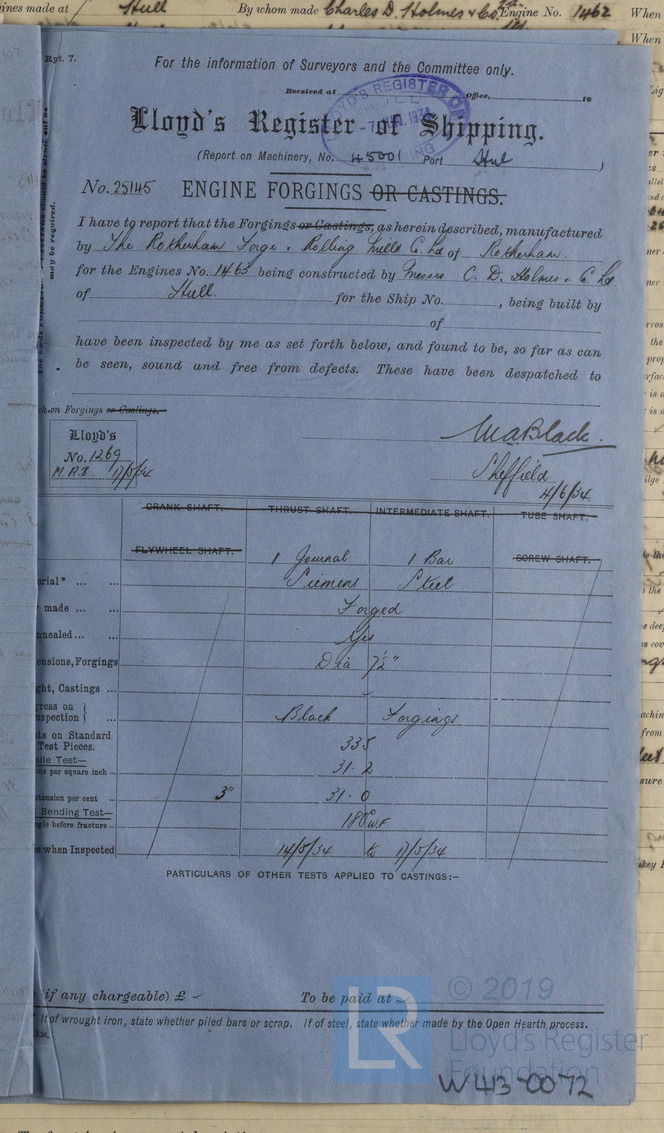 ines made at Hull By whom made Charles D. Holmes & Co Ltd Engine No. 1462 When
When
Rpt. 7.
For the information of Surveyors and the Committee only.
Received at Office, 19
LLOYD'S REGISTER OF
Lloyd's Register of Shipping.
(Report on Machinery, No. 45001 Port Hul )
No. 25145 ENGINE FORGINGS OR CASTINGS.
may be required.
I have to report that the Forgings or Castings, as herein described, manufactured
by The Rotherham Forge & Rolling Mills C. Ld of Rotherham.
for the Engines No. 1463 being constructed by Messrs C. D. Holmes & C. Ld
of Hull. for the Ship No. , being built by
of
have been inspected by me as set forth below, and found to be, so far as can
be seen, sound and free from defects. These have been despatched to
on Forgings or Castings.
Lloyd's
No. 1269
M.A.B 17/5/34
M A Black.
Sheffield
4/6/34
CRANK SHAFT. THRUST SHAFT. INTERMEDIATE SHAFT. TUBE SHAFT.
FLYWHEEL SHAFT. 1 Journal 1 Bar SCREW SHAFT.
erial* ... ... Siemens Steel
made ... ... Forged
nnealed ... ... Yes
ensions, Forgings Dia 7½"
ght, Castings ...
gress on
nspection } ... Black Forgings
ts on Standard
Test Pieces. 335
ile Test—
ns per square inch ... 31.2
tension per cent ... 3" 31.0
Bending Test—
gle before fracture ... 180° U.F
s when Inspected 14/5/34 to 17/5/34
PARTICULARS OF OTHER TESTS APPLIED TO CASTINGS:–
(if any chargeable) £ To be paid at
If of wrought iron, state whether piled bars or scrap. If of steel, state whether made by the Open Hearth process.
LR
© 2019
Lloyd's Register
Foundation
W413-0072